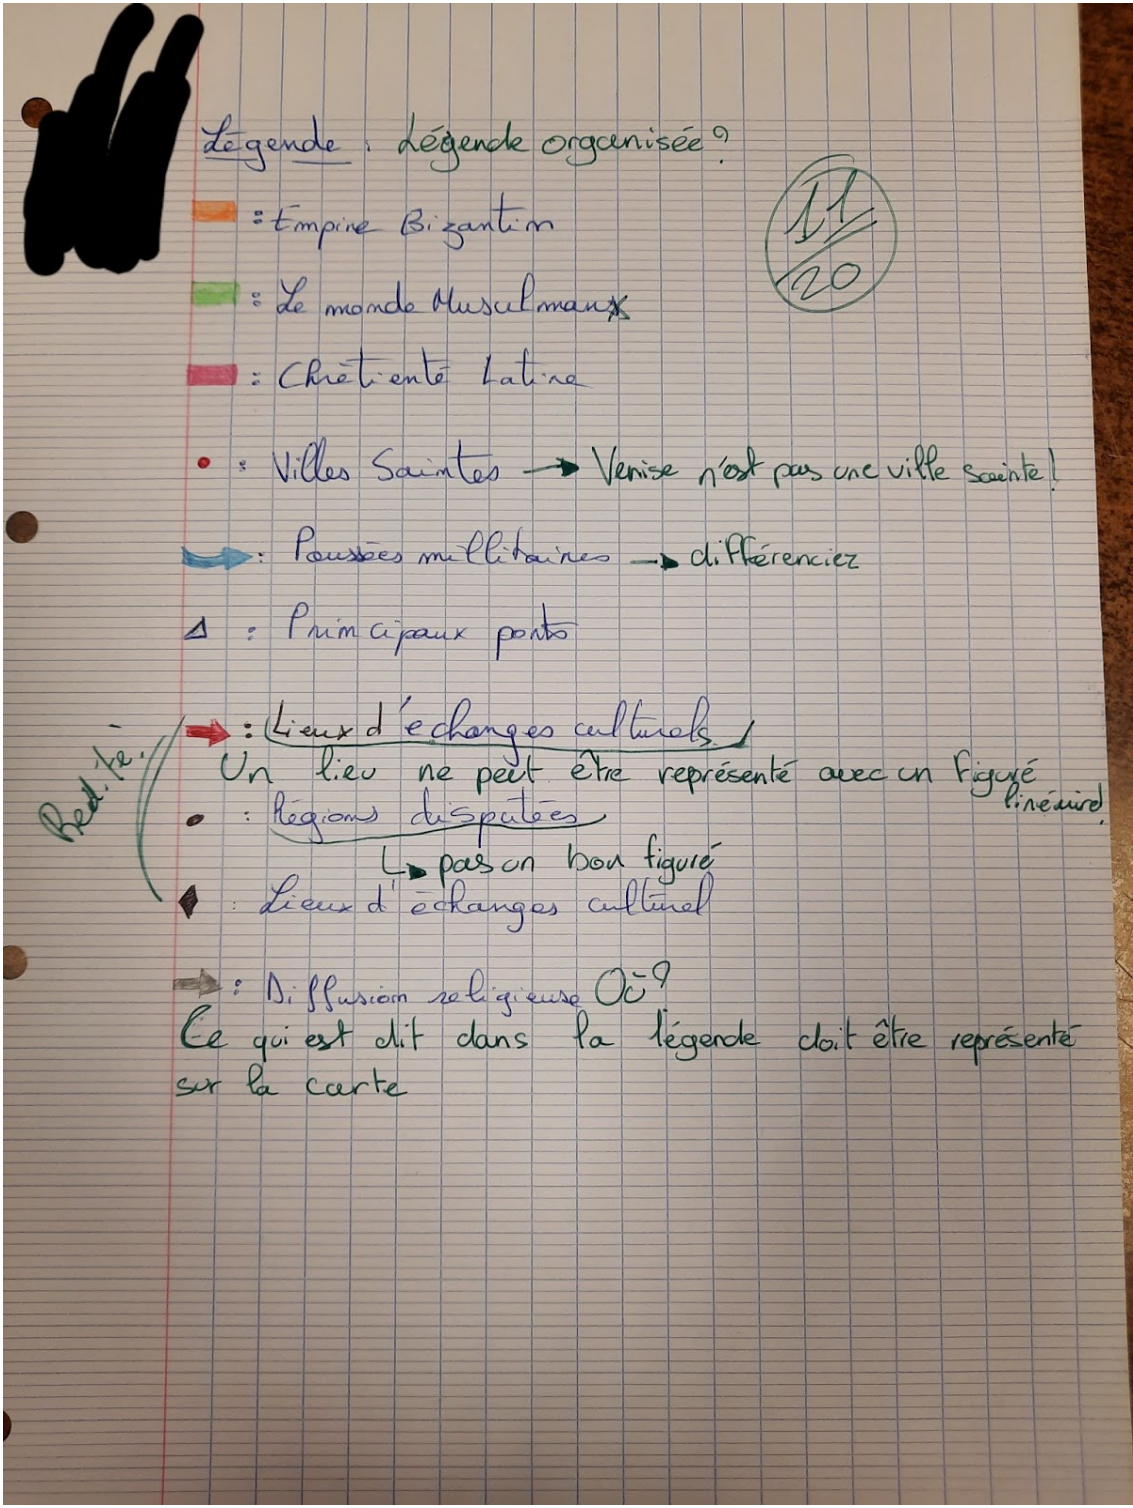 Légende : Légende organisée ?
: Empire Bizantin
11/20
: Le monde Musulmanx
: Chrétienté Latine
: Villes Saintes → Venise n'est pas une ville sainte !
: Poussées millitaires → différenciez
: Principaux ports
: Lieux d'échanges culturels
Un lieu ne peut être représenté avec un figuré
linéaire!
Redite.
: Régions disputées
↳ pas un bon figuré
: Lieux d'échanges culturel
: Diffusion religieuse Où ?
Ce qui est dit dans la légende doit être représenté
sur la carte